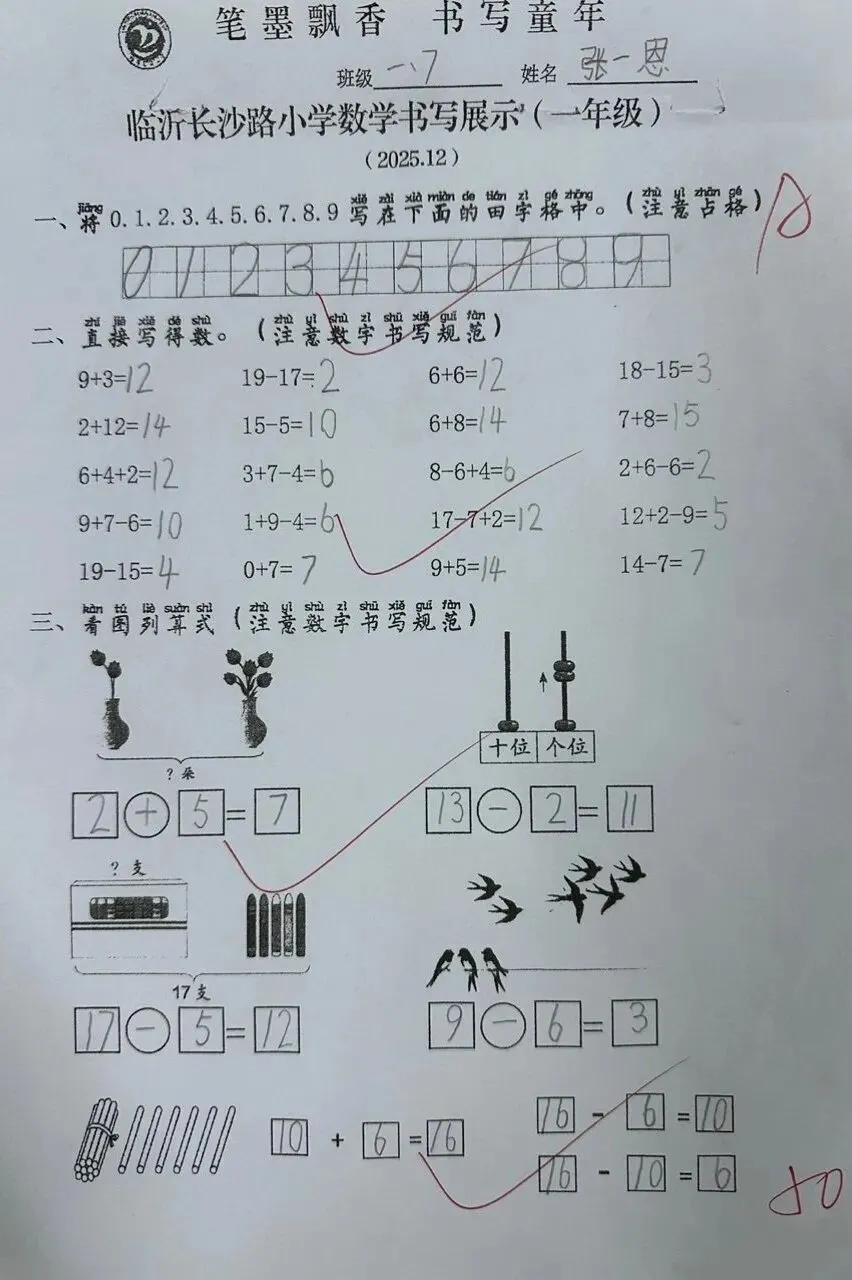 笔墨飘香 书写童年
班级 一、7 姓名 张一恩
临沂长沙路小学数学书写展示（一年级）
（2025.12）
jiāng xiě zài xià miàn de tián zì gé zhōng zhù yì zhàn gé
一、将 0.1.2.3.4.5.6.7.8.9 写在下面的田字格中。（注意占格）
0 1 2 3 4 5 6 7 8 9
zhí jiē xiě dé shù zhù yì shù zì shū xiě guī fàn
二、直接写得数。（注意数字书写规范）
9+3=12 19-17=2 6+6=12 18-15=3
2+12=14 15-5=10 6+8=14 7+8=15
6+4+2=12 3+7-4=6 8-6+4=6 2+6-6=2
9+7-6=10 1+9-4=6 17-7+2=12 12+2-9=5
19-15=4 0+7=7 9+5=14 14-7=7
kàn tú liè suàn shì zhù yì shù zì shū xiě guī fàn
三、看图列算式（注意数字书写规范）
十位 个位
?朵
2+5=7 13-2=11
?支
17支
17-5=12 9-6=3
10+6=16 16-6=10
16-10=6